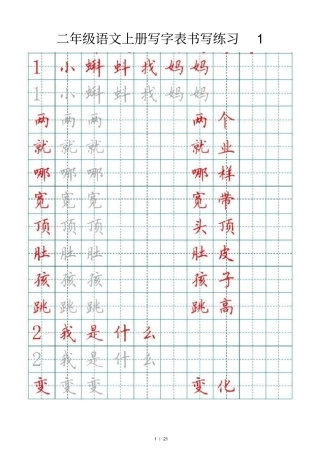 二年级语文上册写字表书写练习 1
1 小蝌蚪找妈妈
1 小蝌蚪找妈妈
两 两 两 两个
就 就 就 就业
哪 哪 哪 哪样
宽 宽 宽 宽带
顶 顶 顶 头顶
肚 肚 肚 肚皮
孩 孩 孩 孩子
跳 跳 跳 跳高
2 我是什么
2 我是什么
变 变 变 变化
1 / 21